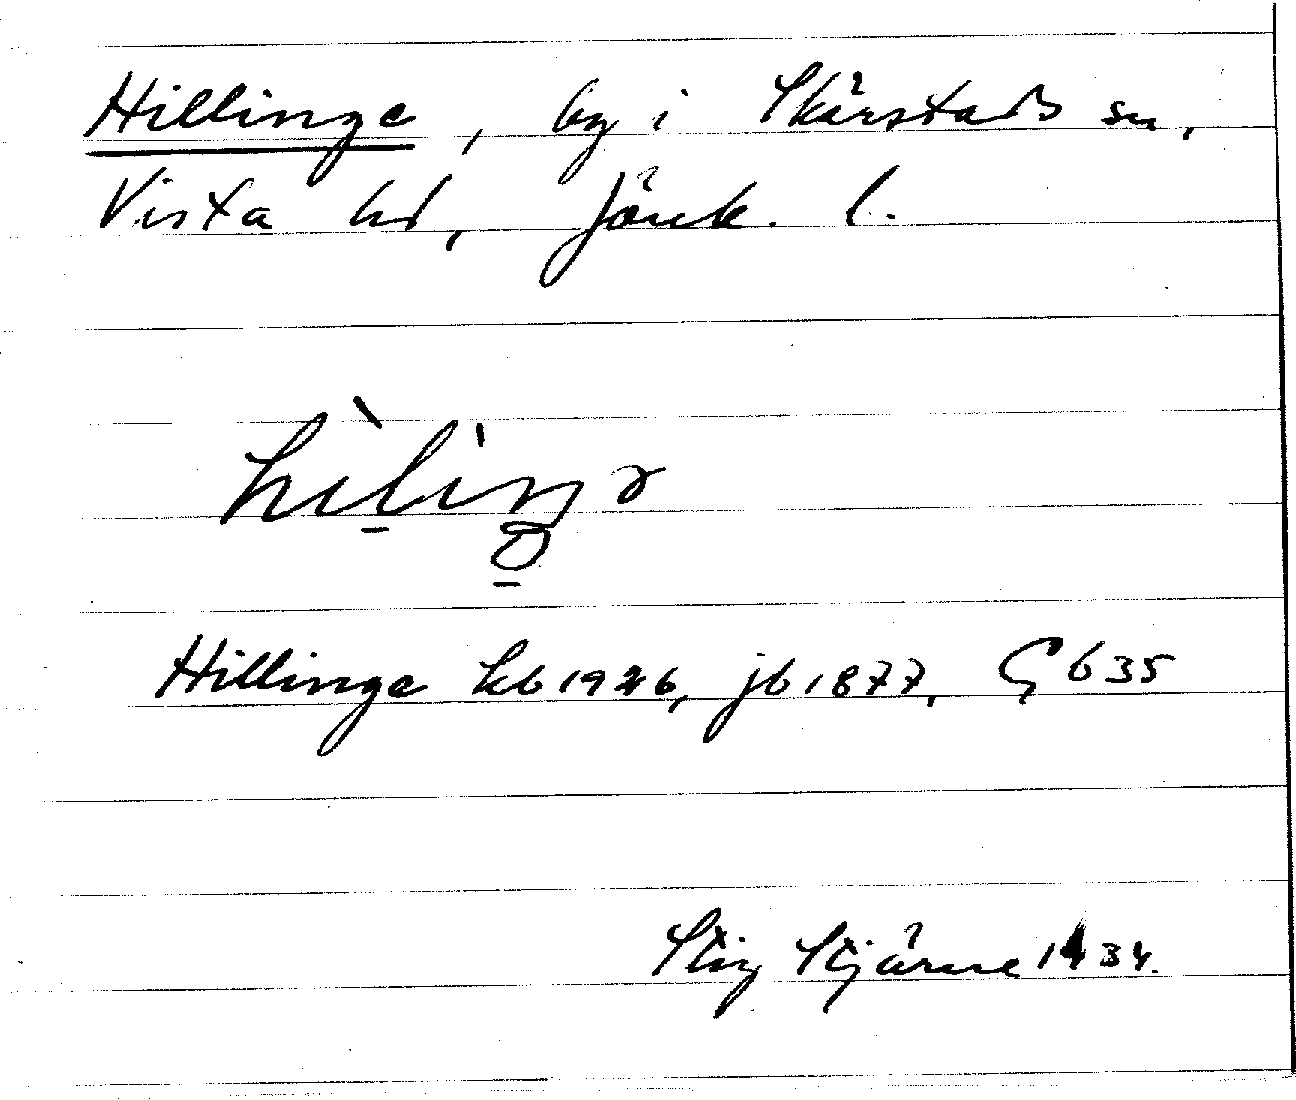 Hillinge, by i Skärstads sn,
Vista hd, Jönk. l.
Hillinge kb 1926, jb 1877, G 635
Stig Stjärne 1934.